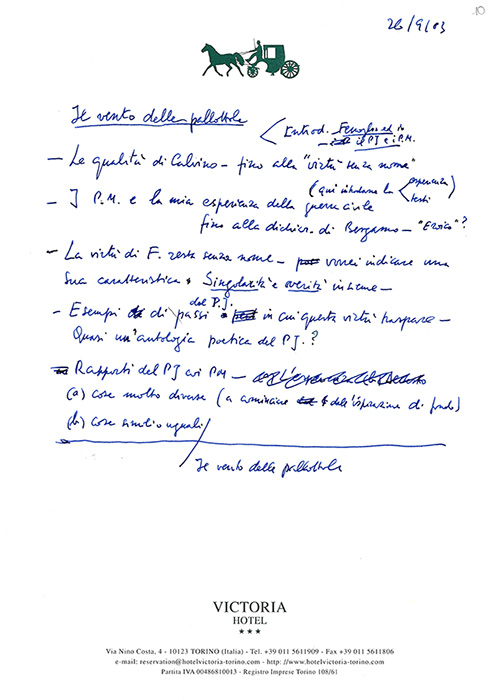 10
26/9/03
Il vento delle pallottole
Introd. Fenoglio ed io
il PJ e i P.M.
– Le qualità di Calvino – fino alla "virtù senza nome"
– I P.M. e la mia esperienza della guerra civile
(qui introdurre la esperienza
testi)
fino alla dichiar. di Bergamo – "Eroico"?
– La virtù di F. resta senza nome – vorrei indicare una
sua caratteristica Singolarità e verità insieme –
– Esempi di passi del P.J. in cui questa virtù traspare –
Quasi un'antologia poetica del PJ.?
Rapporti del PJ coi PM –
(a) cose molto diverse (a cominciare dall'ispirazione di fondo)
(b) cose simili o uguali
Il vento delle pallottole
VICTORIA
HOTEL
★★★
Via Nino Costa, 4 - 10123 TORINO (Italia) - Tel. +39 011 5611909 - Fax +39 011 5611806
e-mail: reservation@hotelvictoria-torino.com - http: //www.hotelvictoria-torino.com
Partita IVA 00486810013 - Registro Imprese Torino 108/61